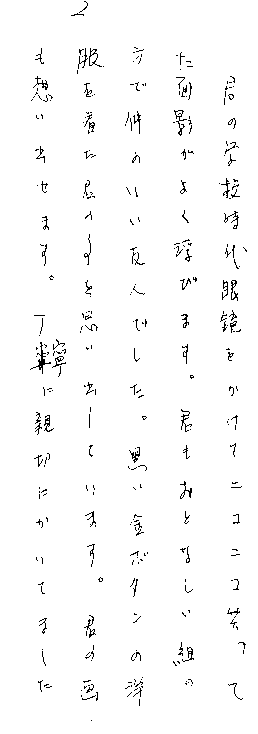 2
君の学校時代眼鏡をかけてニコニコ笑って
た面影がよく浮びます。君もおとなしい組の
方で仲のいい友人でした。黒い金ボタンの洋
服を着た君のことを思い出しています。君の画
も想い出せます。丁寧に親切にかいてました